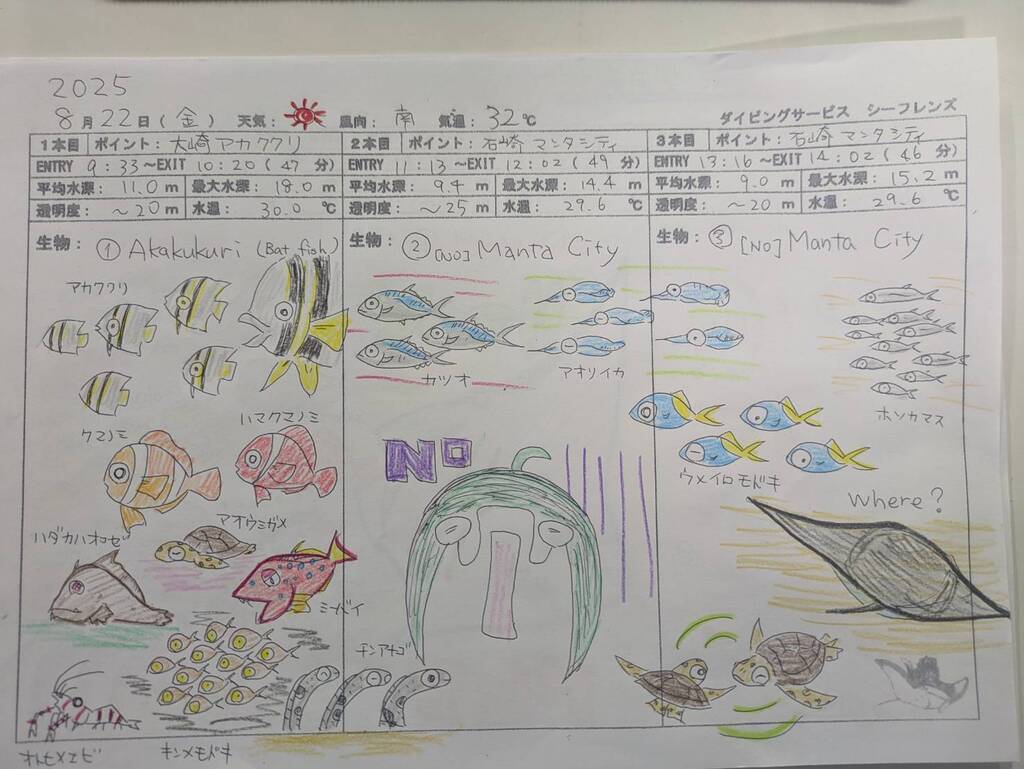 2025
8月22日(金) 天気: 風向: 南 気温: 32℃
ダイビングサービス シーフレンズ
1本目 ポイント: 大崎アカククリ
ENTRY 9:33~EXIT 10:20 (47分)
平均水深: 11.0m 最大水深: 18.0m
透明度: ~20m 水温: 30.0℃
生物: ① Akakukuri (Bat fish)
アカククリ
クマノミ
ハマクマノミ
ハダカハオコゼ
アオウミガメ
ミーバイ
オトヒメエビ
キンメモドキ
2本目 ポイント: 石崎マンタシティ
ENTRY 11:13~EXIT 12:02 (49分)
平均水深: 9.4m 最大水深: 14.4m
透明度: ~25m 水温: 29.6℃
生物: ② [NO] Manta City
カツオ
アオリイカ
NO
チンアナゴ
3本目 ポイント: 石崎マンタシティ
ENTRY 13:16~EXIT 14:02 (46分)
平均水深: 9.0m 最大水深: 15.2m
透明度: ~20m 水温: 29.6℃
生物: ③ [NO] Manta City
ホソカマス
ウメイロモドキ
Where?